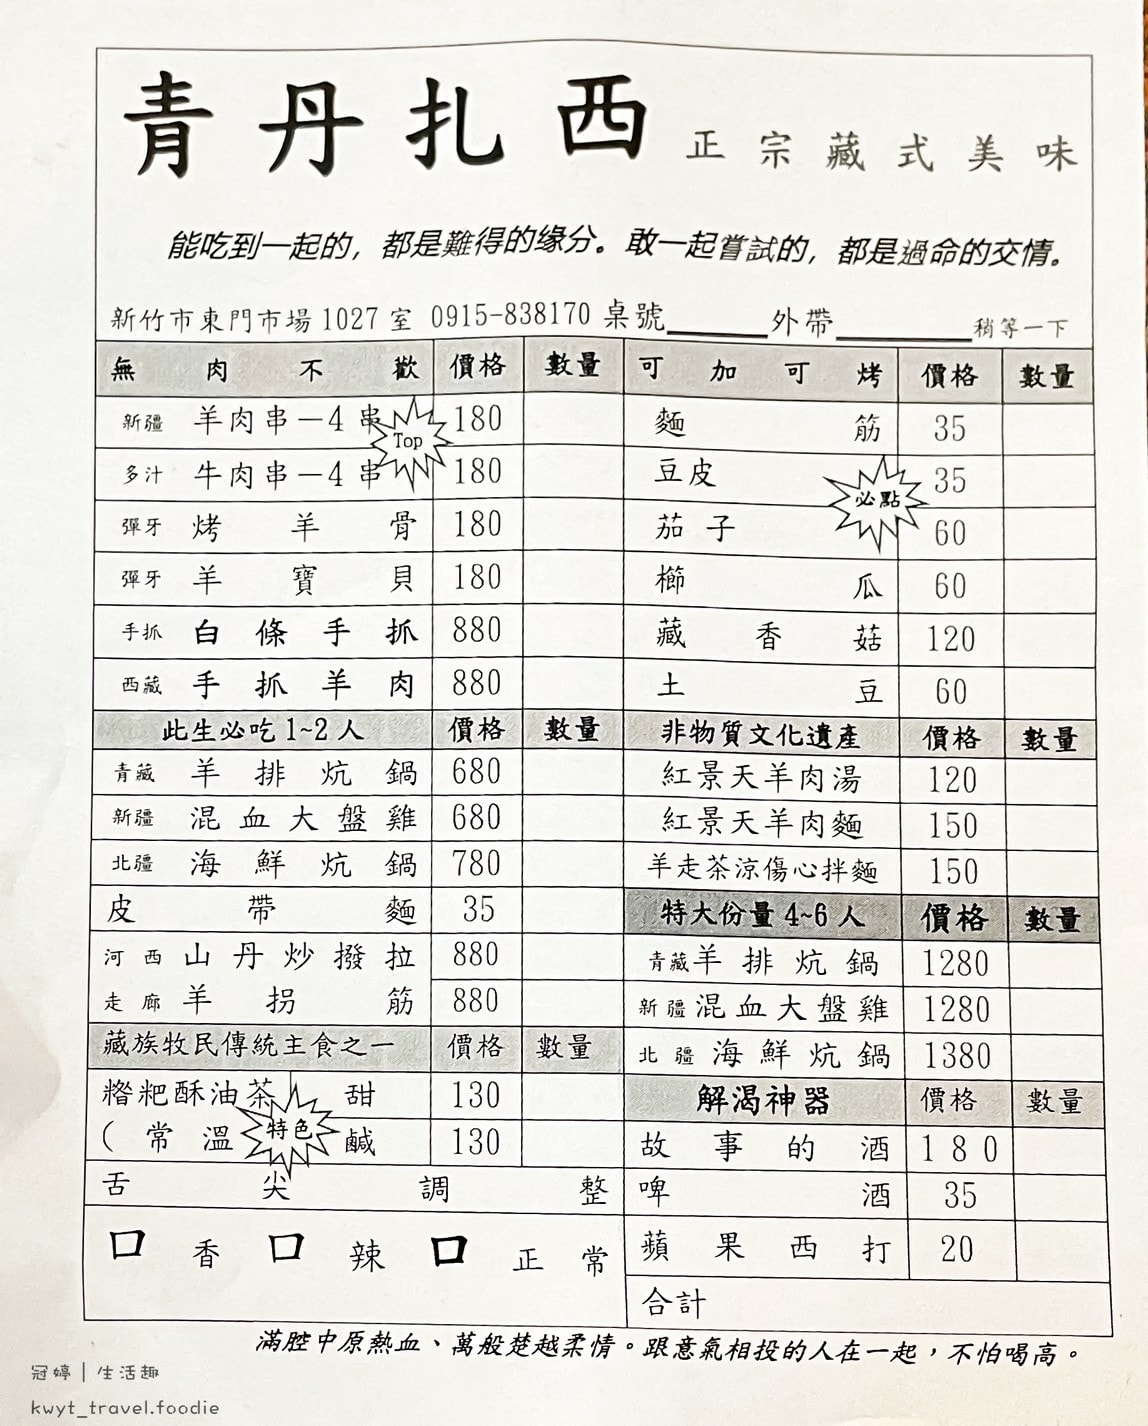 青丹扎西 正宗藏式美味
能吃到一起的，都是難得的缘分。敢一起嘗試的，都是過命的交情。
新竹市東門市場1027室 0915-838170 桌號 外帶 稍等一下
無肉不歡 價格 數量
新疆 羊肉串－4串 180
Top
多汁 牛肉串－4串 180
彈牙 烤羊骨 180
彈牙 羊寶貝 180
手抓 白條手抓 880
西藏 手抓羊肉 880
此生必吃1~2人 價格 數量
青藏 羊排炕鍋 680
新疆 混血大盤雞 680
北疆 海鮮炕鍋 780
皮帶麵 35
河西 山丹炒撥拉 880
走廊 羊拐筋 880
藏族牧民傳統主食之一 價格 數量
糌粑酥油茶 甜 130
(常溫 鹹 130
特色
舌尖調整
口香 口辣 口正常
可加可烤 價格 數量
麵筋 35
豆皮 35
必點
茄子 60
櫛瓜 60
藏香菇 120
土豆 60
非物質文化遺產 價格 數量
紅景天羊肉湯 120
紅景天羊肉麵 150
羊走茶涼傷心拌麵 150
特大份量4~6人 價格 數量
青藏羊排炕鍋 1280
新疆混血大盤雞 1280
北疆海鮮炕鍋 1380
解渴神器 價格 數量
故事的酒 180
啤酒 35
蘋果西打 20
合計
滿腔中原熱血、萬般楚越柔情。跟意氣相投的人在一起，不怕喝高。
冠婷｜生活趣
kwyt_travel.foodie